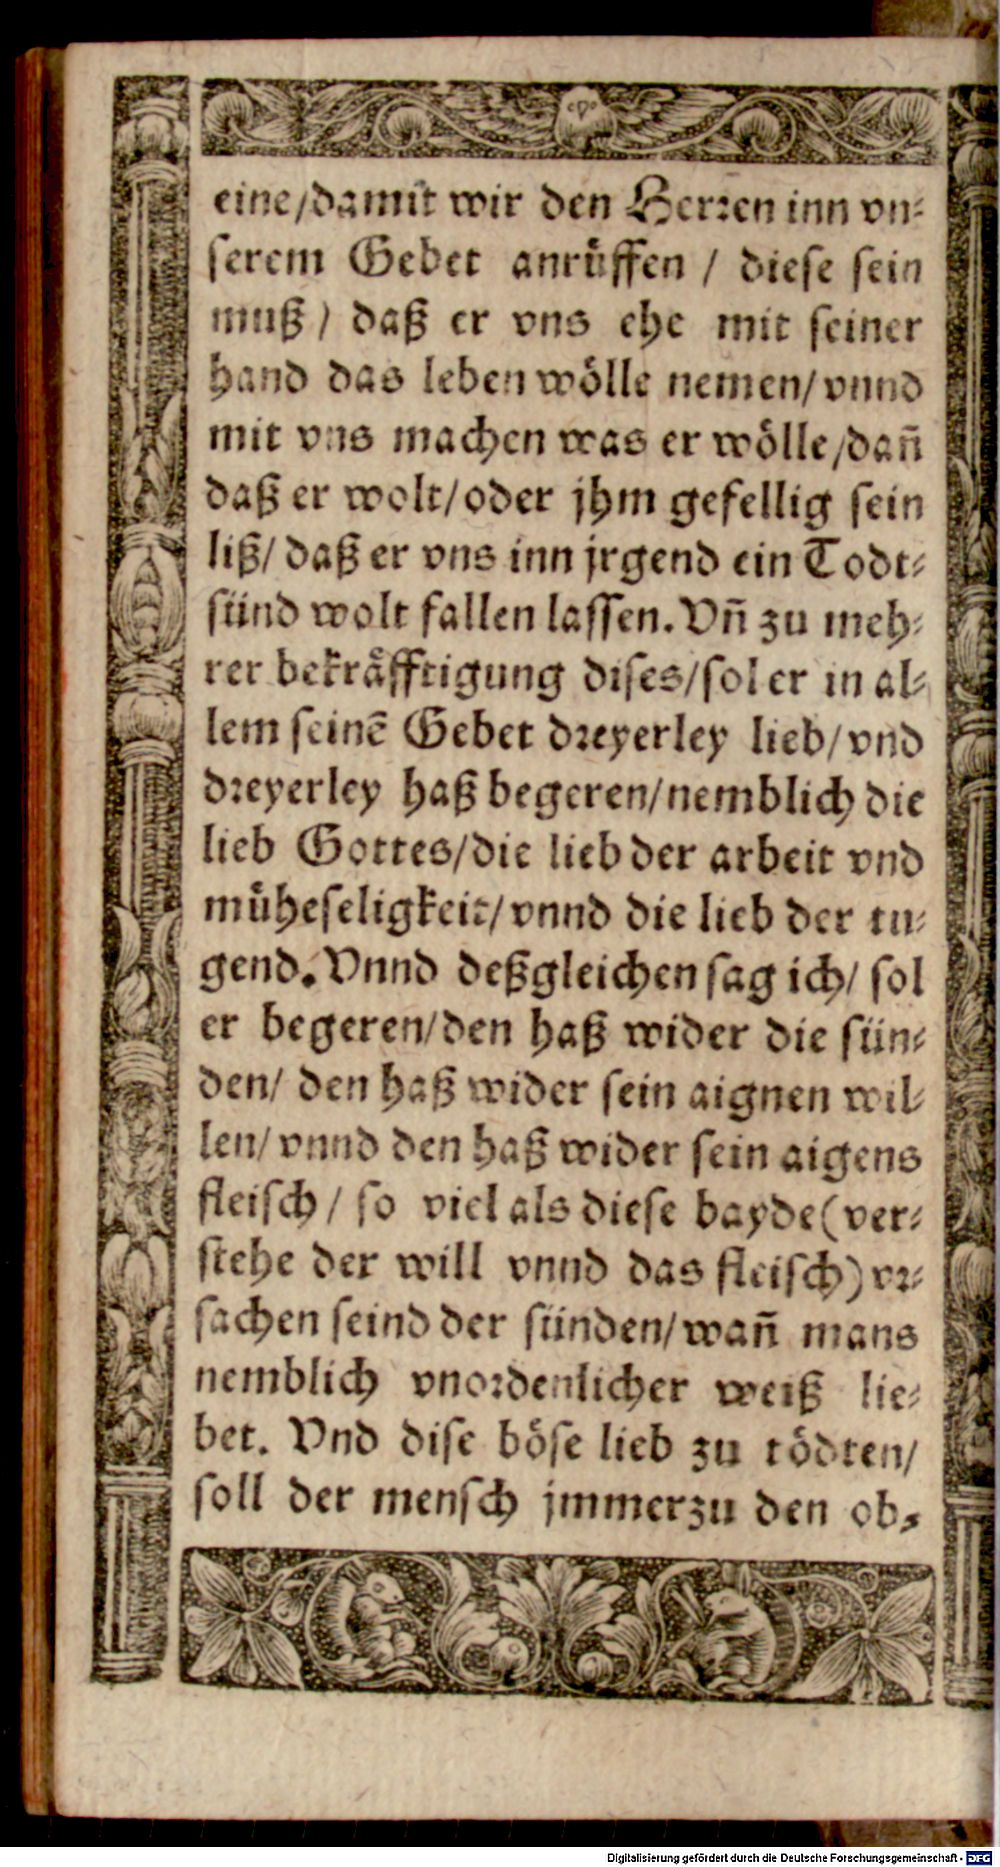 eine/damit wir den Herꝛen inn vn⸗
serem Gebet anrůffen / diese sein
muß / daß er vns ehe mit seiner
hand das leben wölle nemen/ vnnd
mit vns machen was er wölle/dañ
daß er wolt/oder jhm gefellig sein
liß/ daß er vns inn jrgend ein Todt⸗
sünd wolt fallen lassen. Vñ zu meh⸗
rer bekräfftigung dises/sol er in al⸗
lem seinẽ Gebet dꝛeyerley lieb/ vnd
dꝛeyerley haß begeren/nemblich die
lieb Gottes/die lieb der arbeit vnd
müheseligkeit/ vnnd die lieb der tu⸗
gend. Vnnd deßgleichen sag ich/ sol
er begeren/den haß wider die sün⸗
den/ den haß wider sein aignen wil⸗
len/ vnnd den haß wider sein aigens
fleisch / so viel als diese bayde (ver⸗
stehe der will vnnd das fleisch) vꝛ⸗
sachen seind der sünden/ wañ mans
nemblich vnoꝛdenlicher weiß lie⸗
bet. Vnd dise böse lieb zu tödten/
soll der mensch jmmerzu den ob⸗
Digitalisierung gefördert durch die Deutsche Forschungsgemeinschaft - DFG